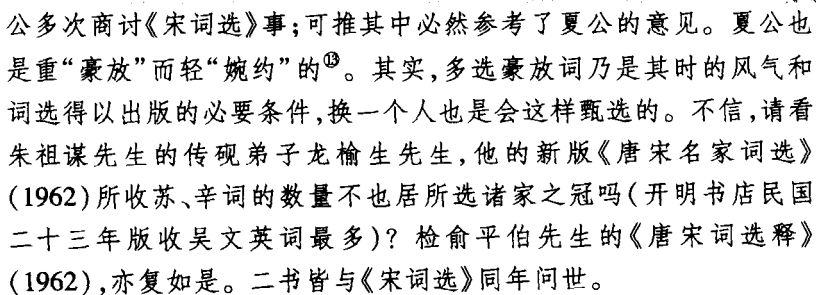 公多次商讨《宋词选》事;可推其中必然参考了夏公的意见。夏公也
是重“豪放”而轻“婉约”的⑬。其实,多选豪放词乃是其时的风气和
词选得以出版的必要条件,换一个人也是会这样甄选的。不信,请看
朱祖谋先生的传砚弟子龙榆生先生,他的新版《唐宋名家词选》
(1962)所收苏、辛词的数量不也居所选诸家之冠吗(开明书店民国
二十三年版收吴文英词最多)?检俞平伯先生的《唐宋词选释》
(1962),亦复如是。二书皆与《宋词选》同年问世。